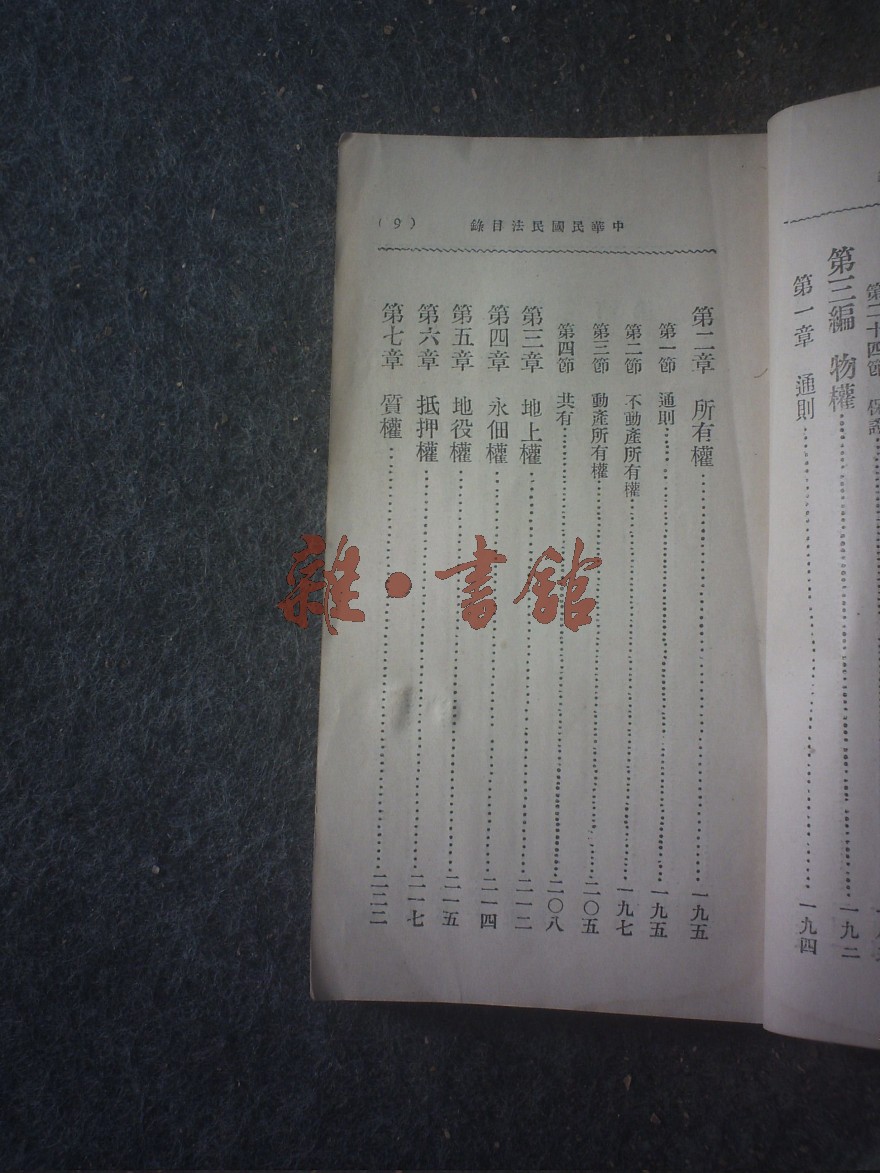 第二十四節 保證
第三編 物權 一九二
第一章 通則 一九四
中華民國民法目錄 (9)
第二章 所有權 一九五
第一節 通則 一九五
第二節 不動產所有權 一九七
第三節 動產所有權 二〇五
第四節 共有 二〇八
第三章 地上權 二一二
第四章 永佃權 二一四
第五章 地役權 二一五
第六章 抵押權 二一七
第七章 質權 二二二
雜·書館